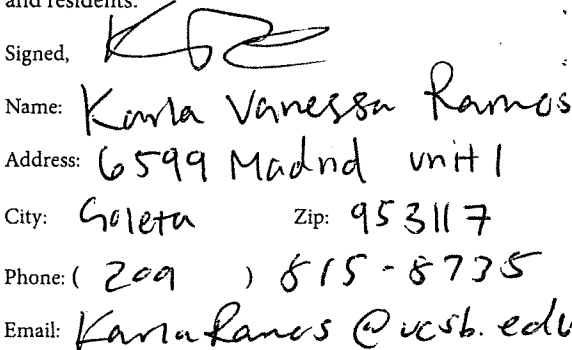 and residents.
Signed,
Name: Karla Vanessa Ramos
Address: 6599 Madrid unit 1
City: Goleta Zip: 953117
Phone: ( 209 ) 815-8735
Email: KarlaRamos@ucsb.edu